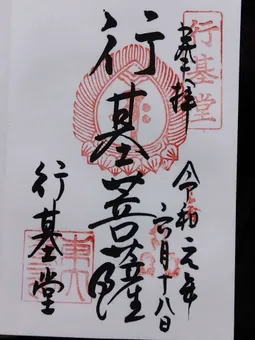 行基堂
奉拝
令和元年
六月十八日
行基菩薩
行基堂
東大